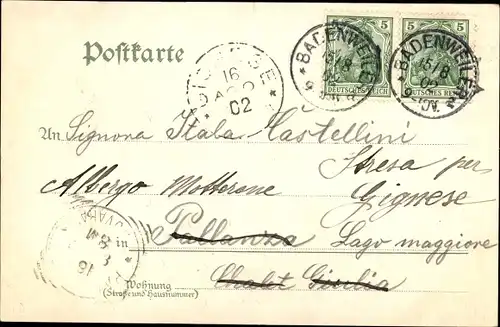 5 5
DEUTSCHES REICH DEUTSCHES REICH
* BADENWEILER *
15/8
02
* BADENWEILER *
15/8
02
Postkarte
16
AGO
02
An Signora Itala Castellini
Stresa per
Albergo Motterone Gignese
in Pallanza Lago maggiore
Wohnung
(Straße und Hausnummer)
Chalet Giulia